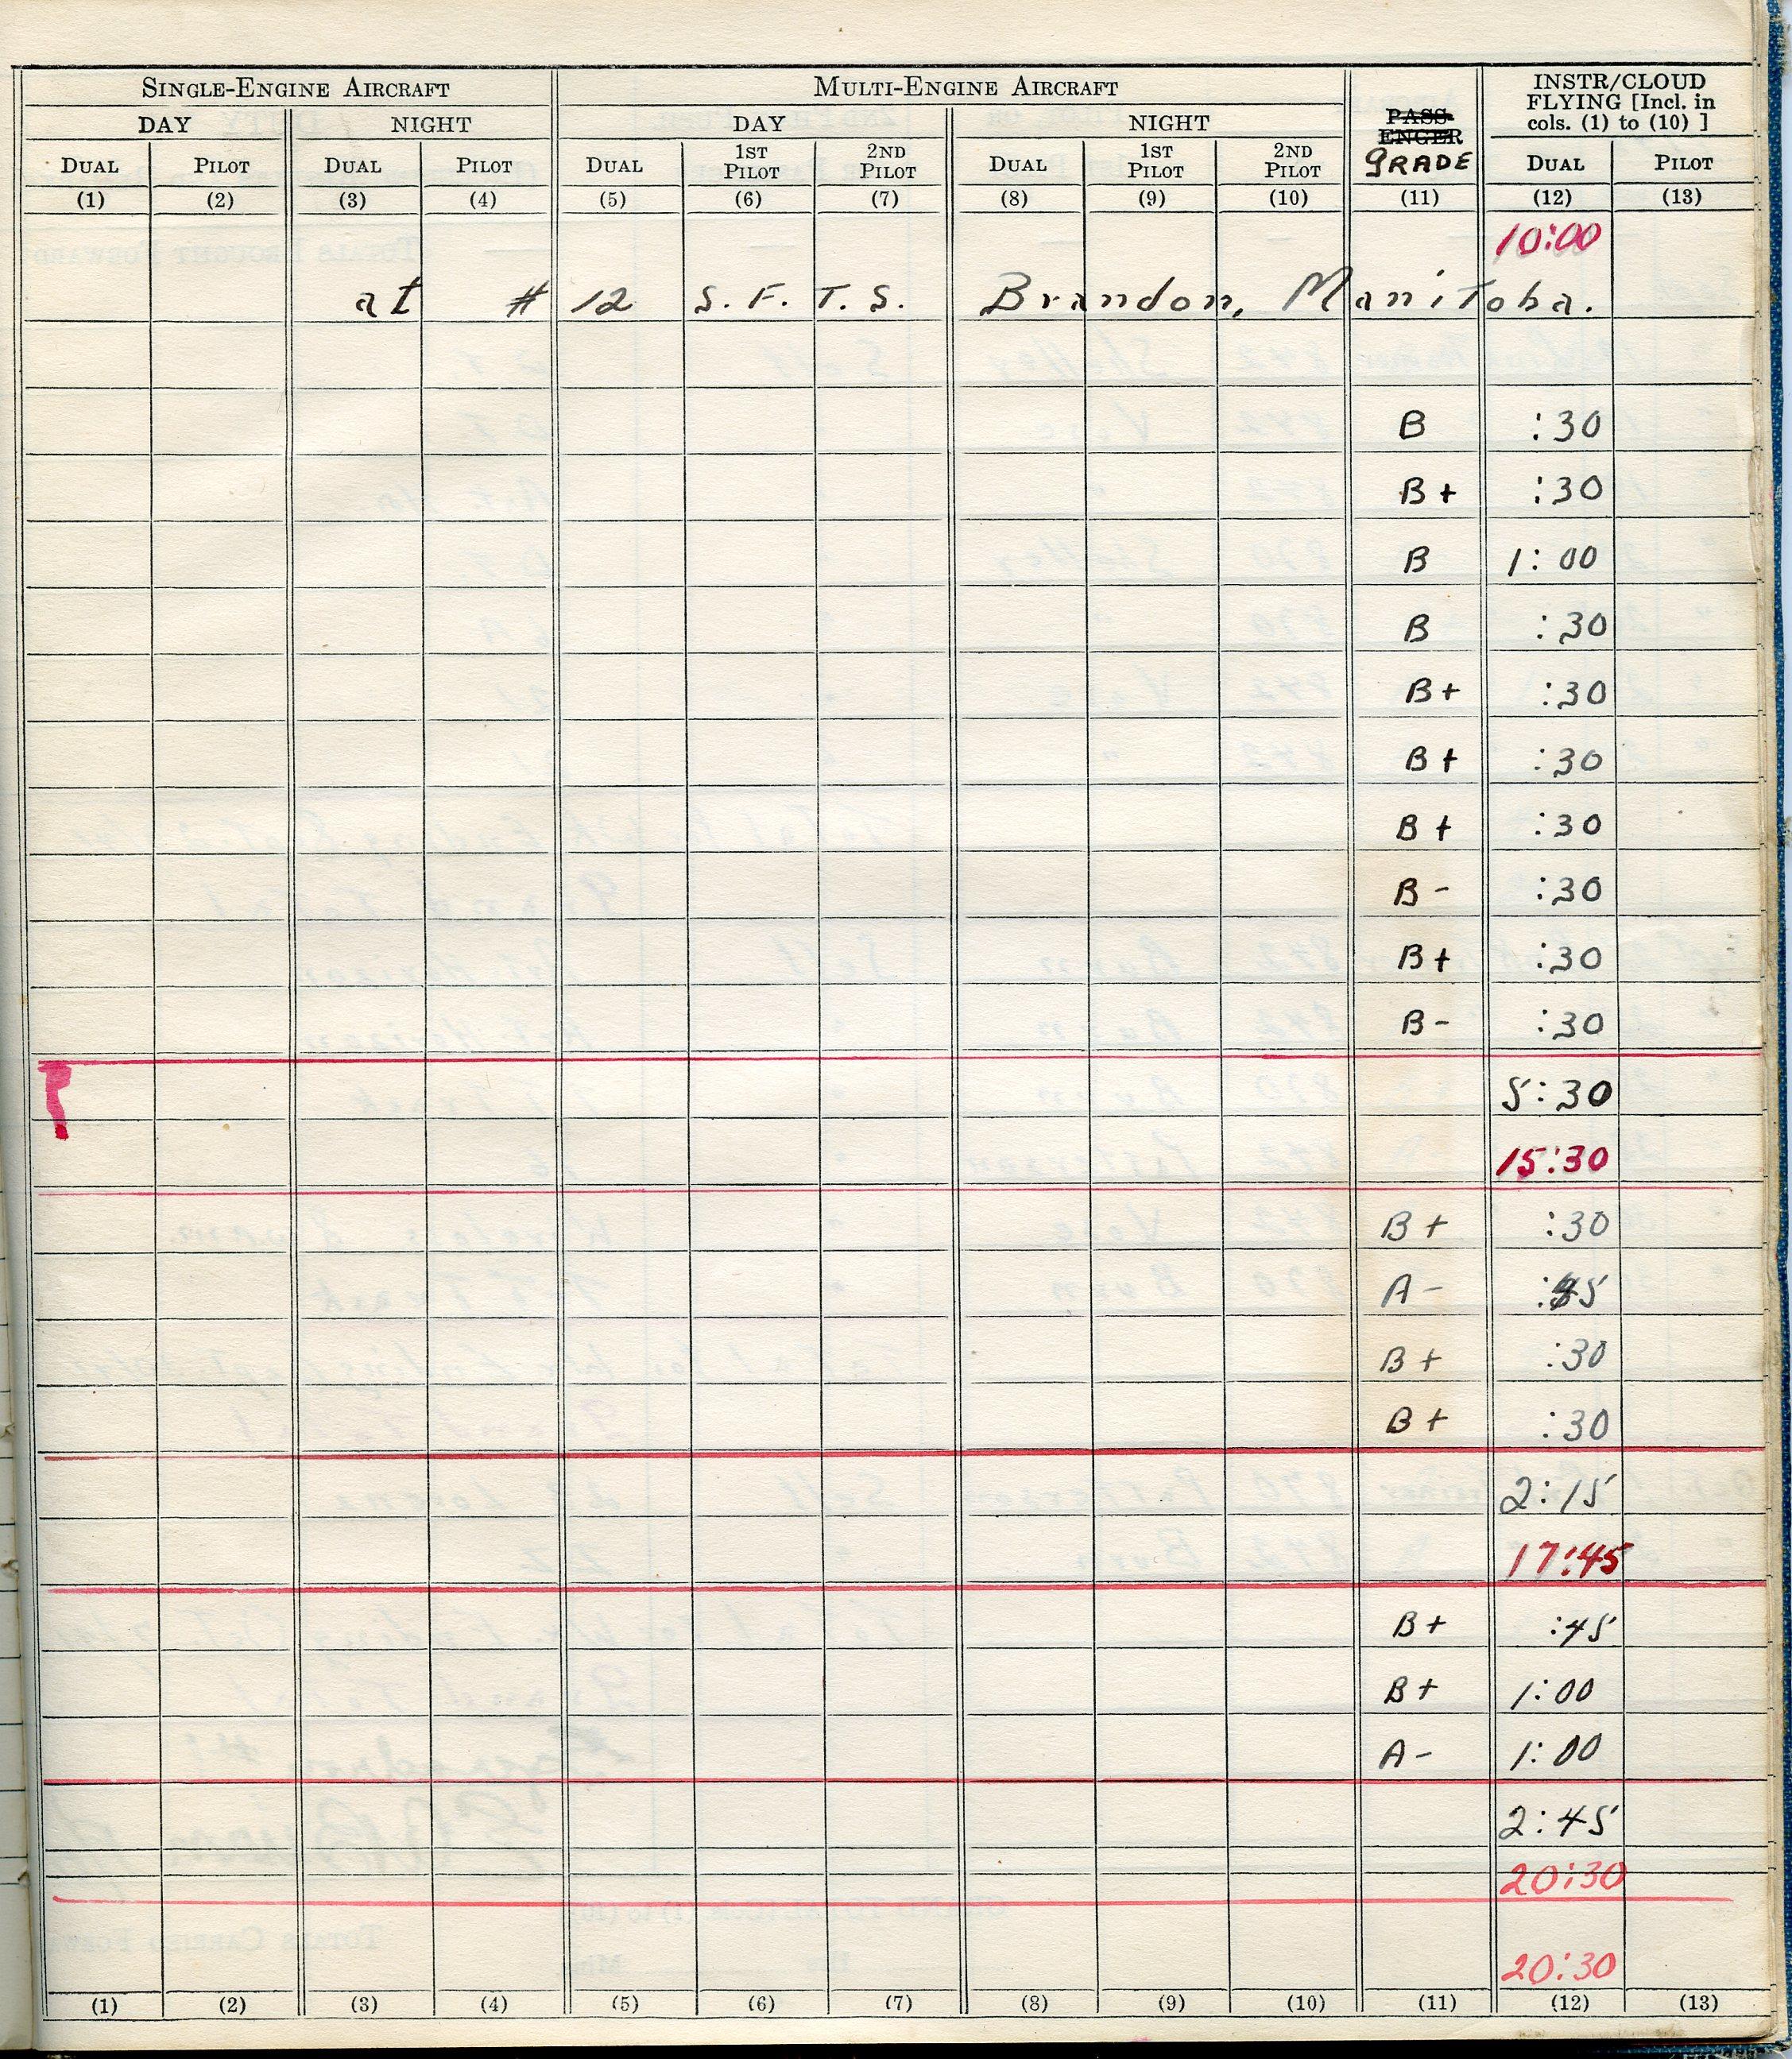 SINGLE-ENGINE AIRCRAFT MULTI-ENGINE AIRCRAFT PASS-ENGER GRADE INSTR/CLOUD FLYING [Incl. in cols. (1) to (10) ]
DAY NIGHT DAY NIGHT
DUAL PILOT DUAL PILOT DUAL 1ST PILOT 2ND PILOT DUAL 1ST PILOT 2ND PILOT DUAL PILOT
(1) (2) (3) (4) (5) (6) (7) (8) (9) (10) (11) (12) (13)
10:00
at # 12 S. F. T. S. Brandon, Manitoba.
B :30
B+ :30
B 1:00
B :30
B+ :30
B+ :30
B+ :30
B- :30
B+ :30
B- :30
5:30
15:30
B+ :30
A- :45
B+ :30
B+ :30
2:15
17:45
B+ :45
B+ 1:00
A- 1:00
2:45
20:30
20:30
(1) (2) (3) (4) (5) (6) (7) (8) (9) (10) (11) (12) (13)